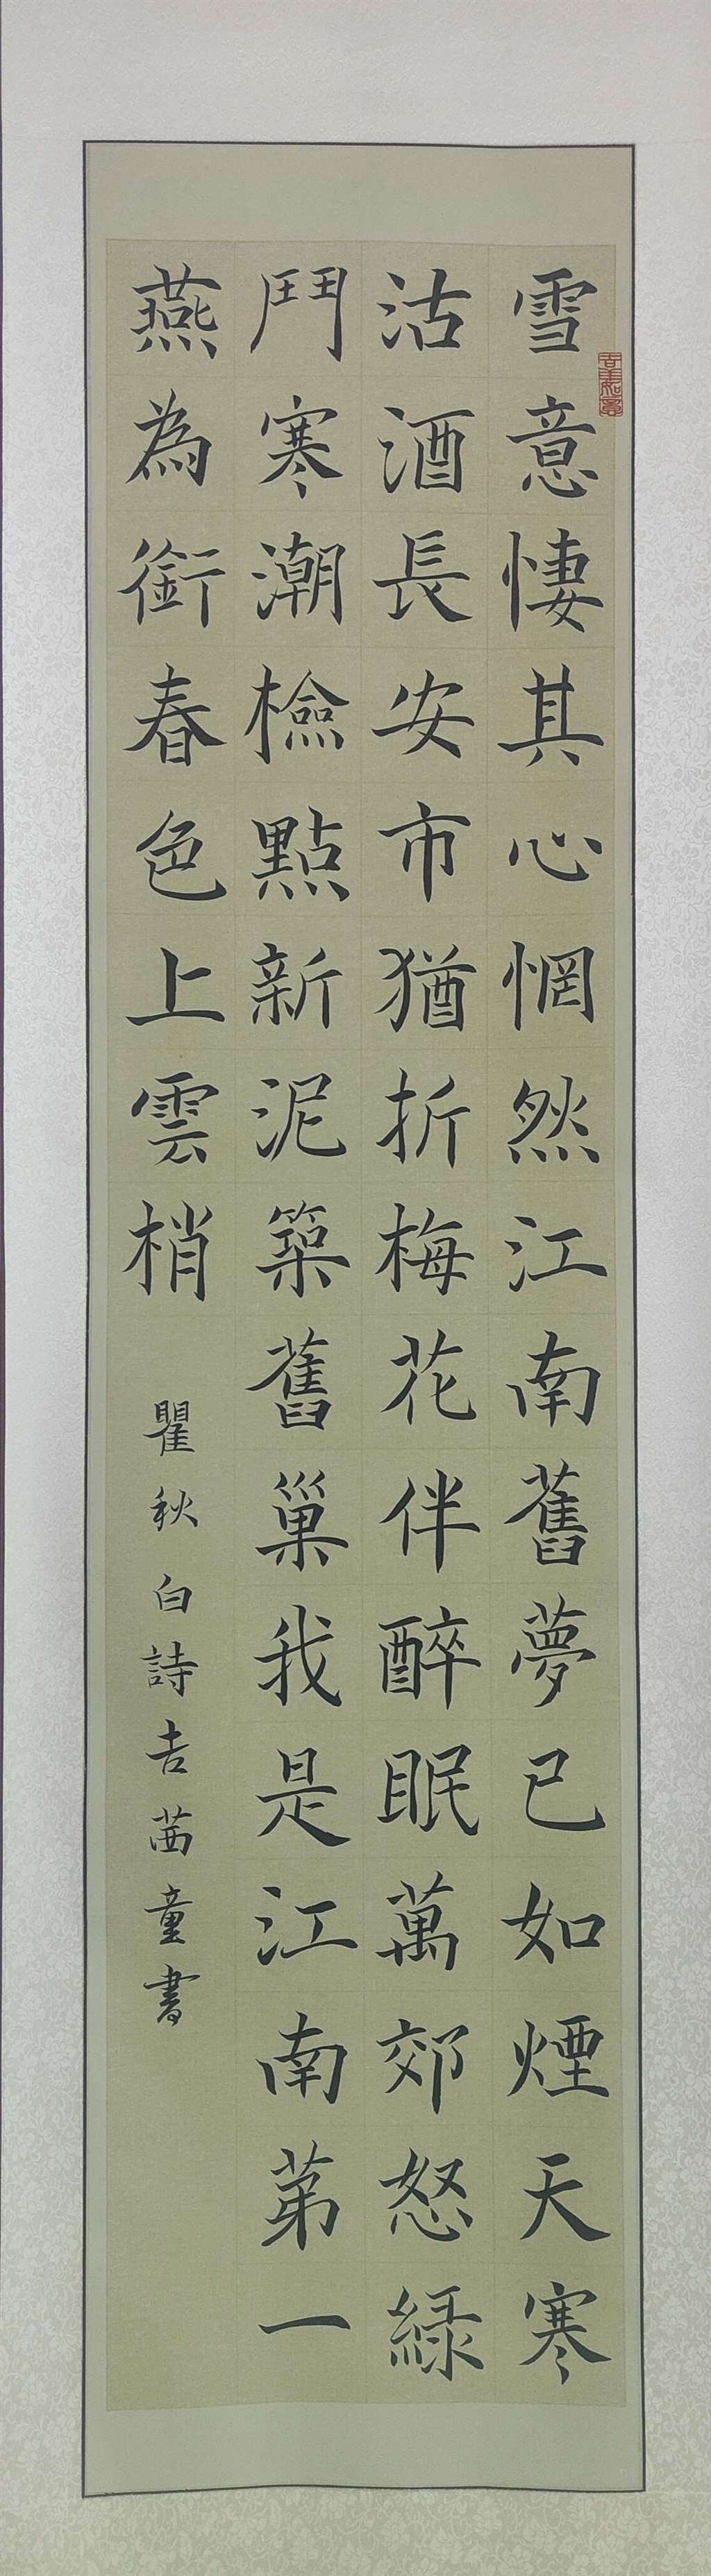 雪意悽其心惘然江南舊夢已如煙天寒
沽酒長安市猶折梅花伴醉眠萬郊怒綠
鬥寒潮檢點新泥築舊巢我是江南第一
燕為銜春色上雲梢
瞿秋白詩吉茜童書
吉羊如意